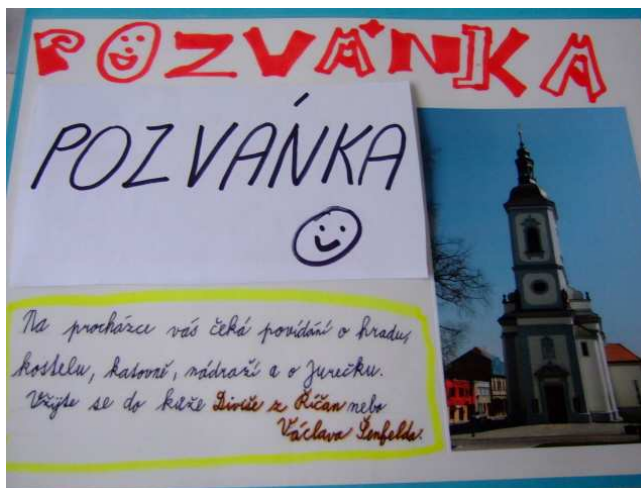 POZVÁNKA
POZVÁNKA
Na procházce vás čeká povídání o hradu,
kostelu, katovně, nádraží a o Jurečku.
Vžijte se do kůže Diviše z Říčan nebo
Václava Šenfelda.